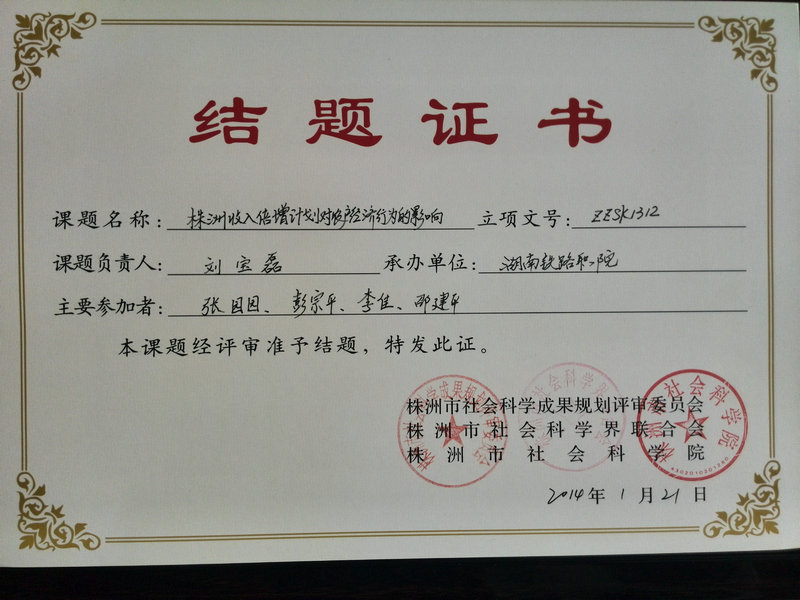 结题证书
课题名称：株洲收入倍增计划对农户经济行为的影响 立项文号：ZZSK1312
课题负责人：刘宝磊 承办单位：湖南铁路职院
主要参加者：张因因、彭宗平、李佳、邵建平
本课题经评审准予结题，特发此证。
株洲市社会科学成果规划评审委员会
株洲市社会科学界联合会
株洲市社会科学院
2014年1月21日